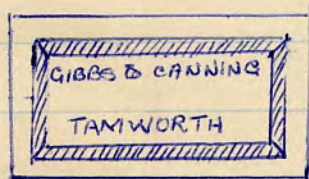 GIBBS & CANNING
TAMWORTH